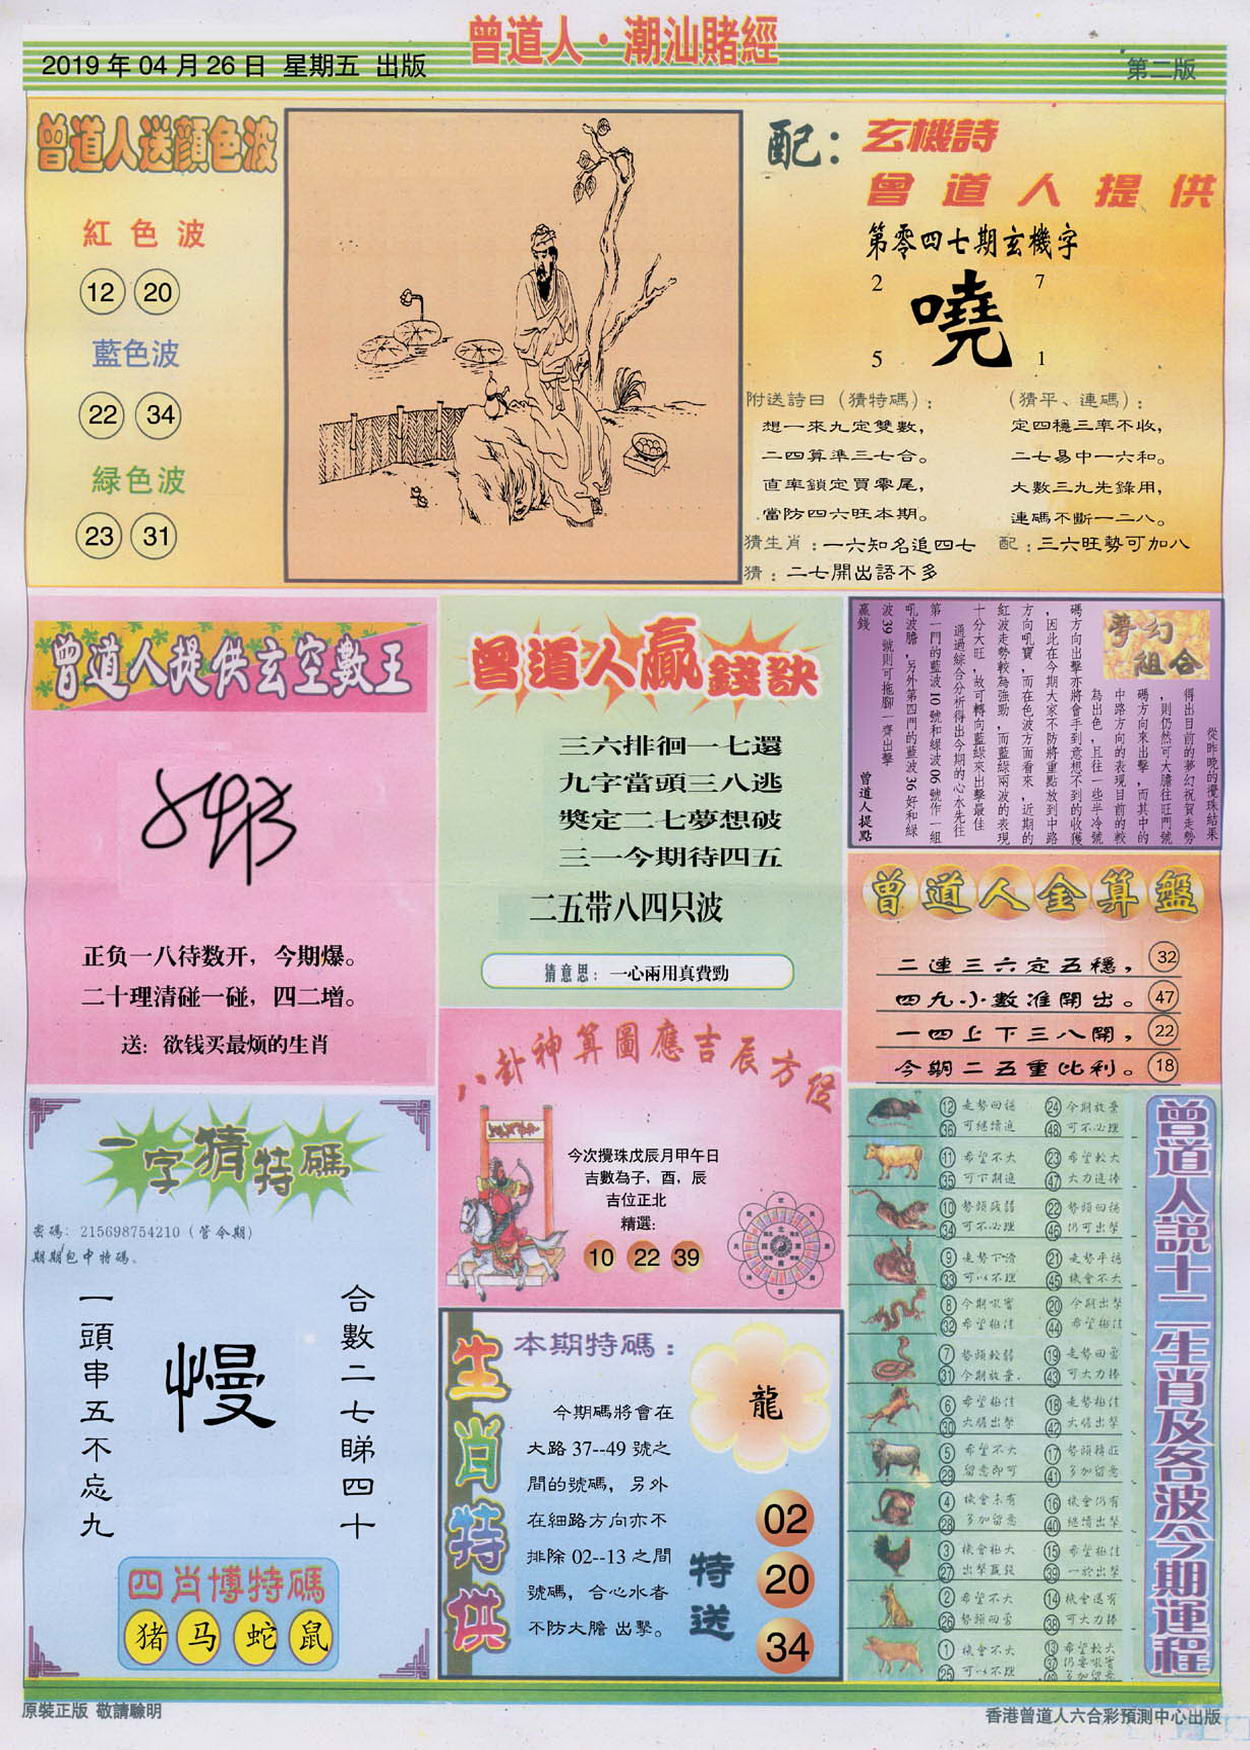 曾道人·潮汕賭經
2019年04月26日 星期五 出版
第二版
曾道人送顔色波
紅色波
12 20
藍色波
22 34
緑色波
23 31
配：玄機詩
曾道人提供
第零四七期玄機字
2 7
嘵
5 1
附送詩曰（猜特碼）：
想一來九定雙數，
二四算準三七合。
直率鎖定買零尾，
當防四六旺本期。
（猜平、連碼）：
定四穩三率不收，
二七易中一六和。
大數三九先錄用，
連碼不斷一二八。
猜生肖：一六知名追四七
配：三六旺勢可加八
猜：二七開出語不多
曾道人提供玄空數王
正负一八待数开，今期爆。
二十理清碰一碰，四二增。
送：欲钱买最烦的生肖
曾道人贏錢訣
三六排徊一七還
九字當頭三八逃
獎定二七夢想破
三一今期待四五
二五带八四只波
猜意思：一心兩用真費勁
夢幻組合
從昨晚的攪珠結果
得出目前的夢幻祝賀走勢
，則仍然可大膽往旺門號
碼方向來出擊，而其中的
中路方向的表現目前的較
為出色，且往一些半冷號
碼方向出擊亦將會手到意想不到的收獲
，因此在今期大家不防將重點放到中路
方向吼寶，而在色波方面看來，近期的
紅波走勢較為強勁，而藍綠兩波的表現
十分大旺，故可轉向藍綠來出擊最佳
通過綜合分析得出今期的心水先往
第一門的藍波10號和綠波06號作一組
吼波膽，另外第四門的藍波36好和綠
波39號則可拖腳一齊出擊
贏錢 曾道人提點
曾道人金算盤
二連三六定五穩， 32
四九小數准開出。 47
一四上下三八開， 22
今期二五重比利。 18
一字猜特碼
密碼：215698754210（管今期）
期期包中特碼。
一頭串五不忘九
慢
合數二七睇四十
四肖博特碼
猪 马 蛇 鼠
八卦神算圖應吉辰方位
今次攪珠戊辰月甲午日
吉數為子，酉，辰
吉位正北
精選：
10 22 39
生肖特供
本期特碼：
今期碼將會在
大路37--49號之
間的號碼，另外
在細路方向亦不
排除02--13之間
號碼，合心水者
不防大膽出擊。
龍
特送
02
20
34
曾道人説十二生肖及各波今期運程
12 走勢回穩 24 今期放棄
36 可繼續追 48 可不必理
11 希望不大 23 希望較大
35 可下期追 47 大力追捧
10 勢頭疲弱 22 勢頭回穩
34 可不必理 46 仍可出擊
9 走勢下滑 21 走勢平穩
33 可以不理 45 機會不大
8 今期吼實 20 今期出擊
32 希望極佳 44 希望極佳
7 勢頭較弱 19 走勢回需
31 今期放棄. 43 可大力捧
6 希望極佳 18 走勢極佳
30 大膽出擊 42 大膽出擊
5 希望不大 17 勢頭轉旺
29 留意即可 41 多加留意
4 機會未有 16 機會仍有
28 多加留意 40 繼續出擊
3 機會極大 15 希望極佳
27 出擊羸錢 39 一於出擊
2 希望不大 14 機會還有
26 勢頭回需 38 可大力捧
1 機會不大 13 希望較大
25 可以不理 37 仍要吼實
49 多加留意
原裝正版 敬請驗明
香港曾道人六合彩預測中心出版